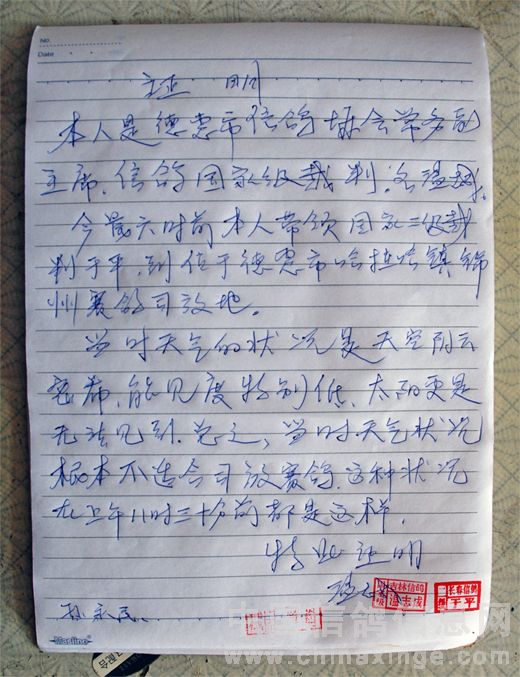 No.
Date
证 明
本人是德惠市信鸽协会常务副
主席,信鸽国家级裁判,
今晨六时前本人带领国家二级裁
判于平,到位于德惠市哈拉哈镇锦
州赛鸽司放地。
当时天气的状况是天空阴云
密布,能见度特别低,太阳更是
无法见到.总之,当时天气状况
根本不适合司放赛鸽.这种状况
在上午八时三十分前都是这样.
特此证明
吉林信鸽
长春信鸽
于平
www.chinaxinge.com